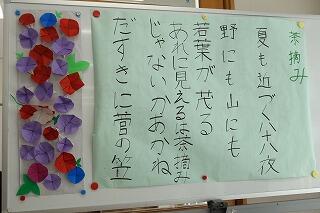 茶摘み
夏も近づく八十八夜
野にも山にも
若葉が茂る
あれに見えるは茶摘み
じゃないかあかね
だすきに菅の笠